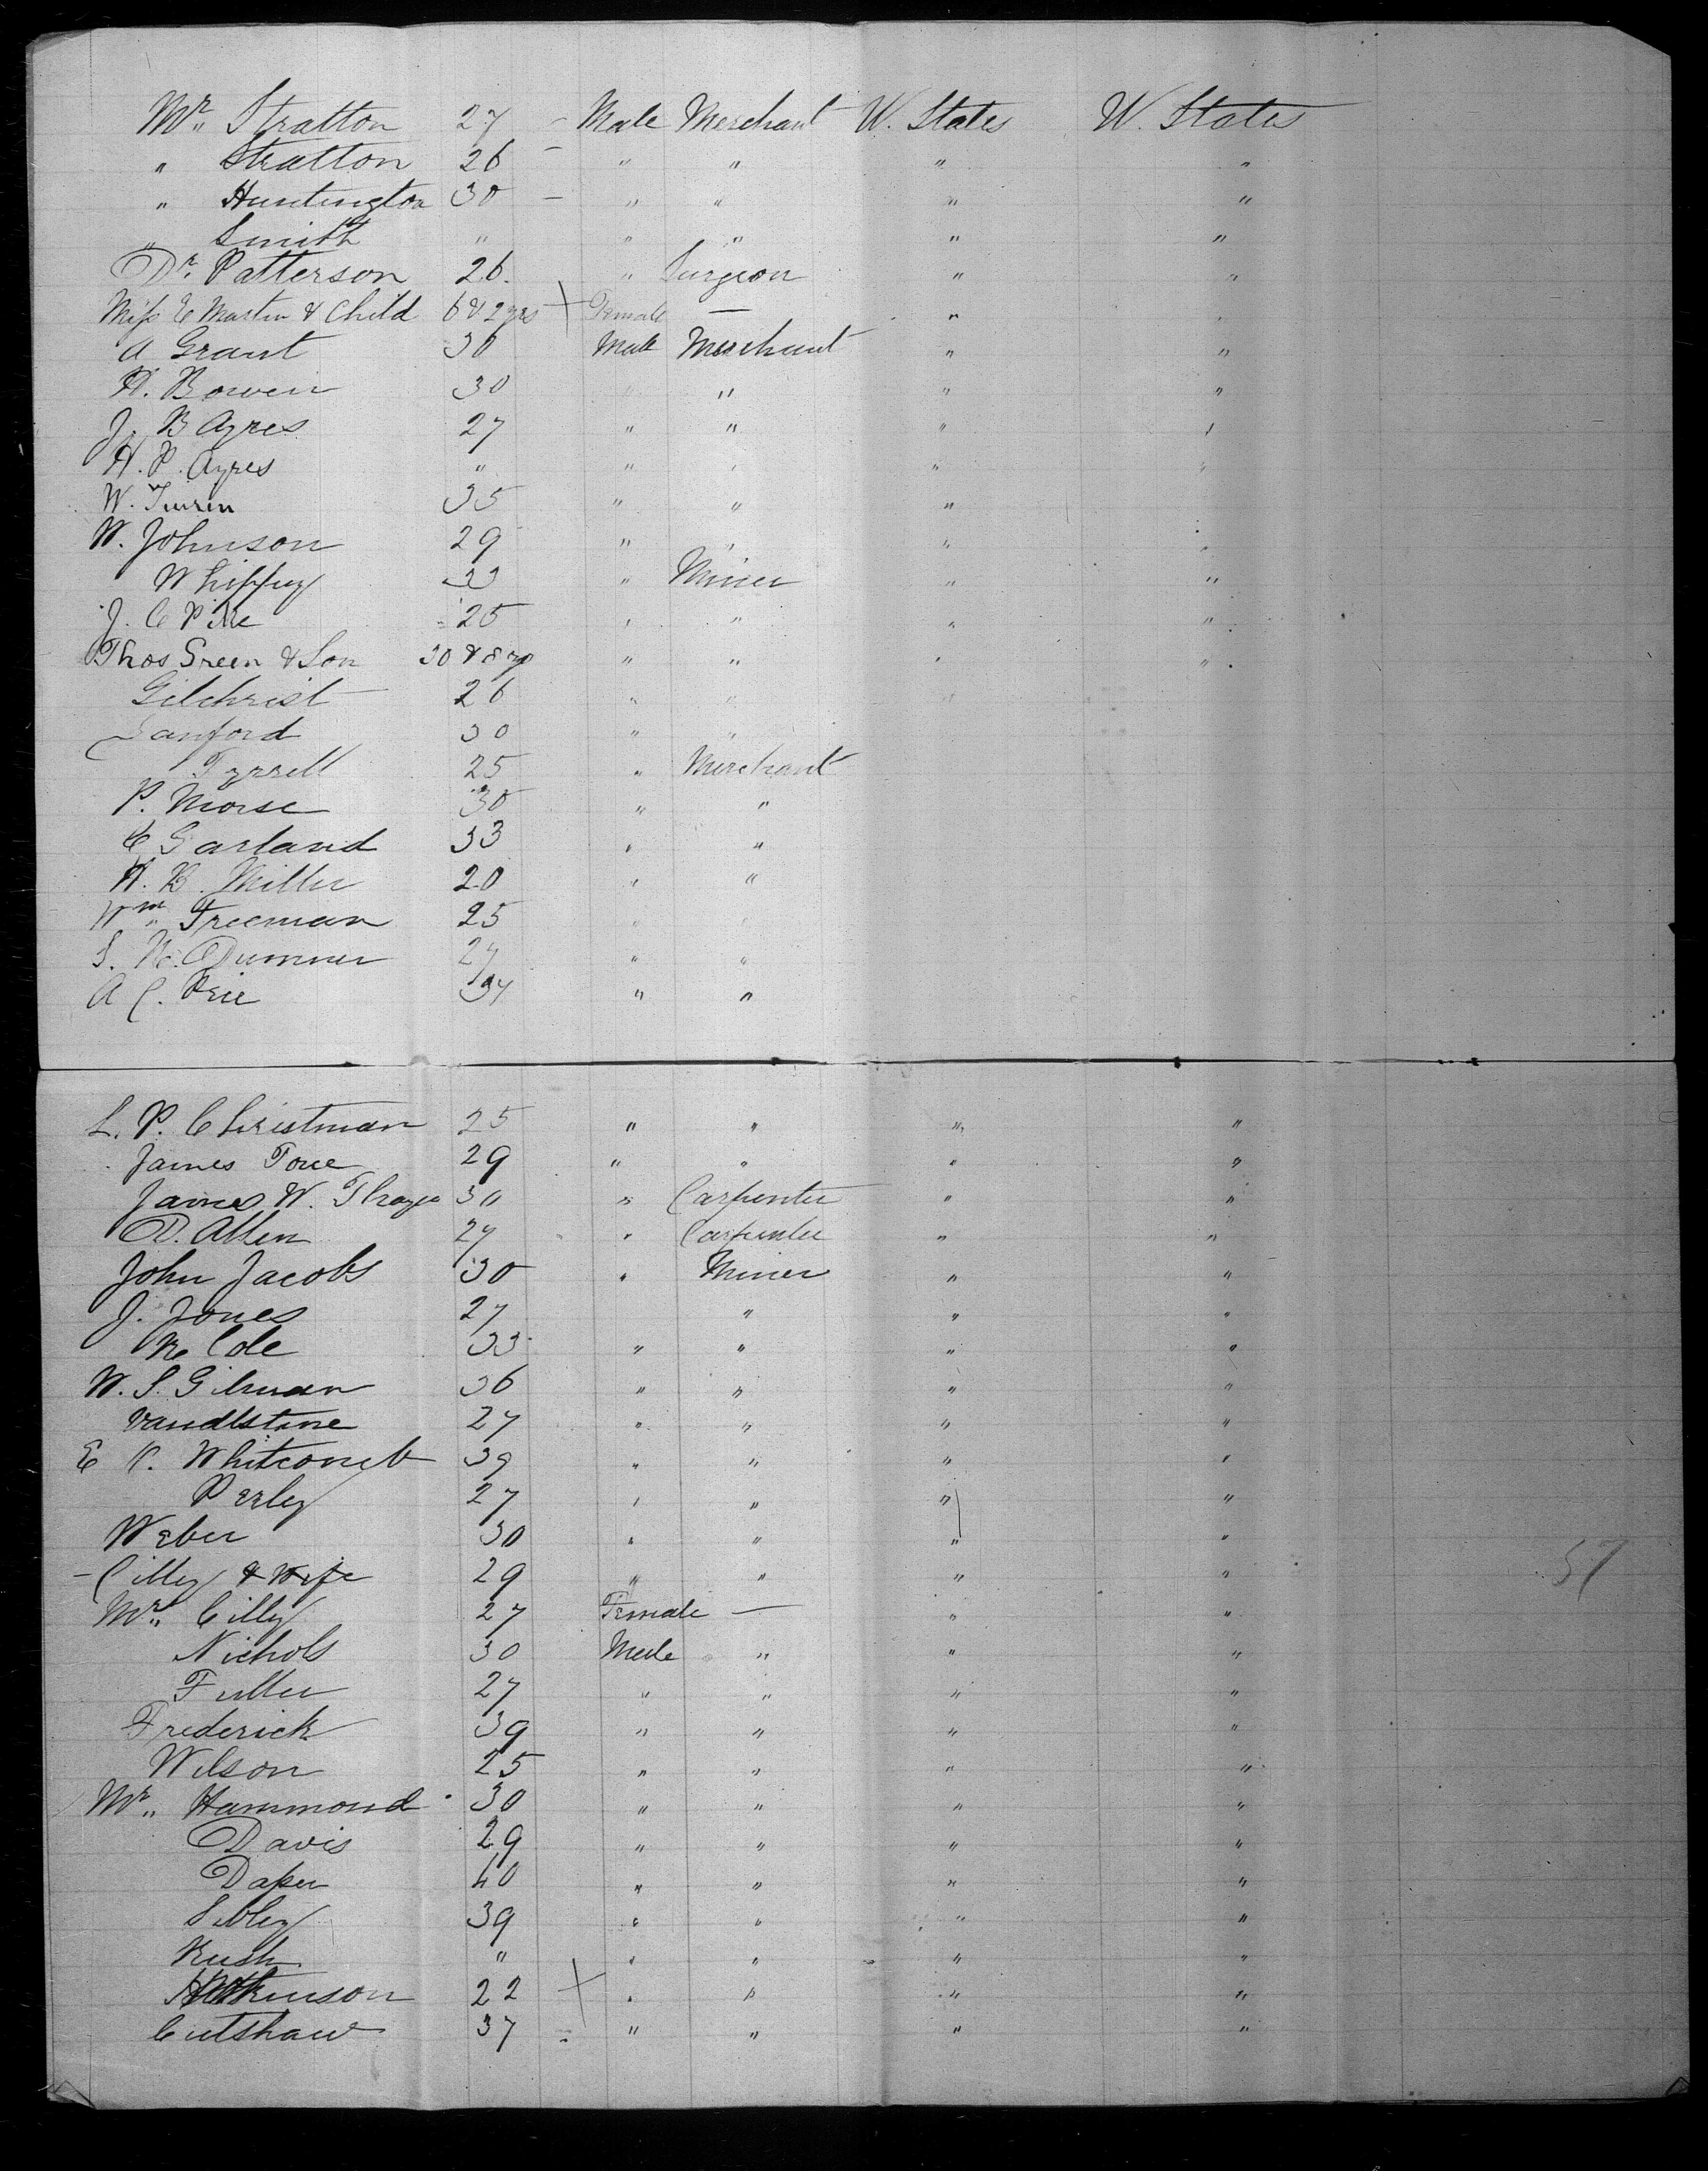 Mr. Stratton 27 – Male Merchant U. States U. States
" Stratton 26 – " " " "
" Huntington 30 – " " " "
" Smith " " " " "
Dr. Patterson 26. " Surgeon " "
Miss E Martin & Child 6 & 2 yrs Female — "
A Grant 30 Male Merchant " "
H. Bowen 30 " " "
J. B Ayres 27 " " " "
H. P. Ayres " " " " "
W. 35 " " "
W. Johnson 29 " " " "
Whippey 33 " Miner " "
J. C Pike 25 " " " "
Thos Green & Son 30 & 8 yr " " " "
Gilchrist 26 " "
Sanford 30 " "
Tyrrell 25 " Merchant
P. Morse 30 " "
C Garland 33 " "
H. B. Miller 20 " "
Wm. Freeman 25 "
S. Dummer 27 " "
A C. 34 " "
L. P. Christman 25 " " " "
James 29 " " " "
James W. Thayer 30 " Carpenter " "
D. Allen 27 " Carpenter " "
John Jacobs 30 " Miner " "
J. Jones 27 " " "
Cole 33 " " " "
W. S. Gilman 36 " " " "
Vandlstine 27 " " " "
E C. Whitcomb 39 " " " "
Perley 27 " " " "
Weber 30 " " " "
– Cilley & Wife 29 " " " "
Mrs. Cilly 27 Female — " "
Nichols 30 Male " " "
Fuller 27 " " " "
Frederick 39 " " " "
Wilson 25 " " " "
Mr. Hammond 30 " " " "
Davis 29 " " " "
Daper 40 " " " "
Sibley 39 " " " "
Rush " " " " "
22 " " " "
Cutshaw 37 " " " "
57